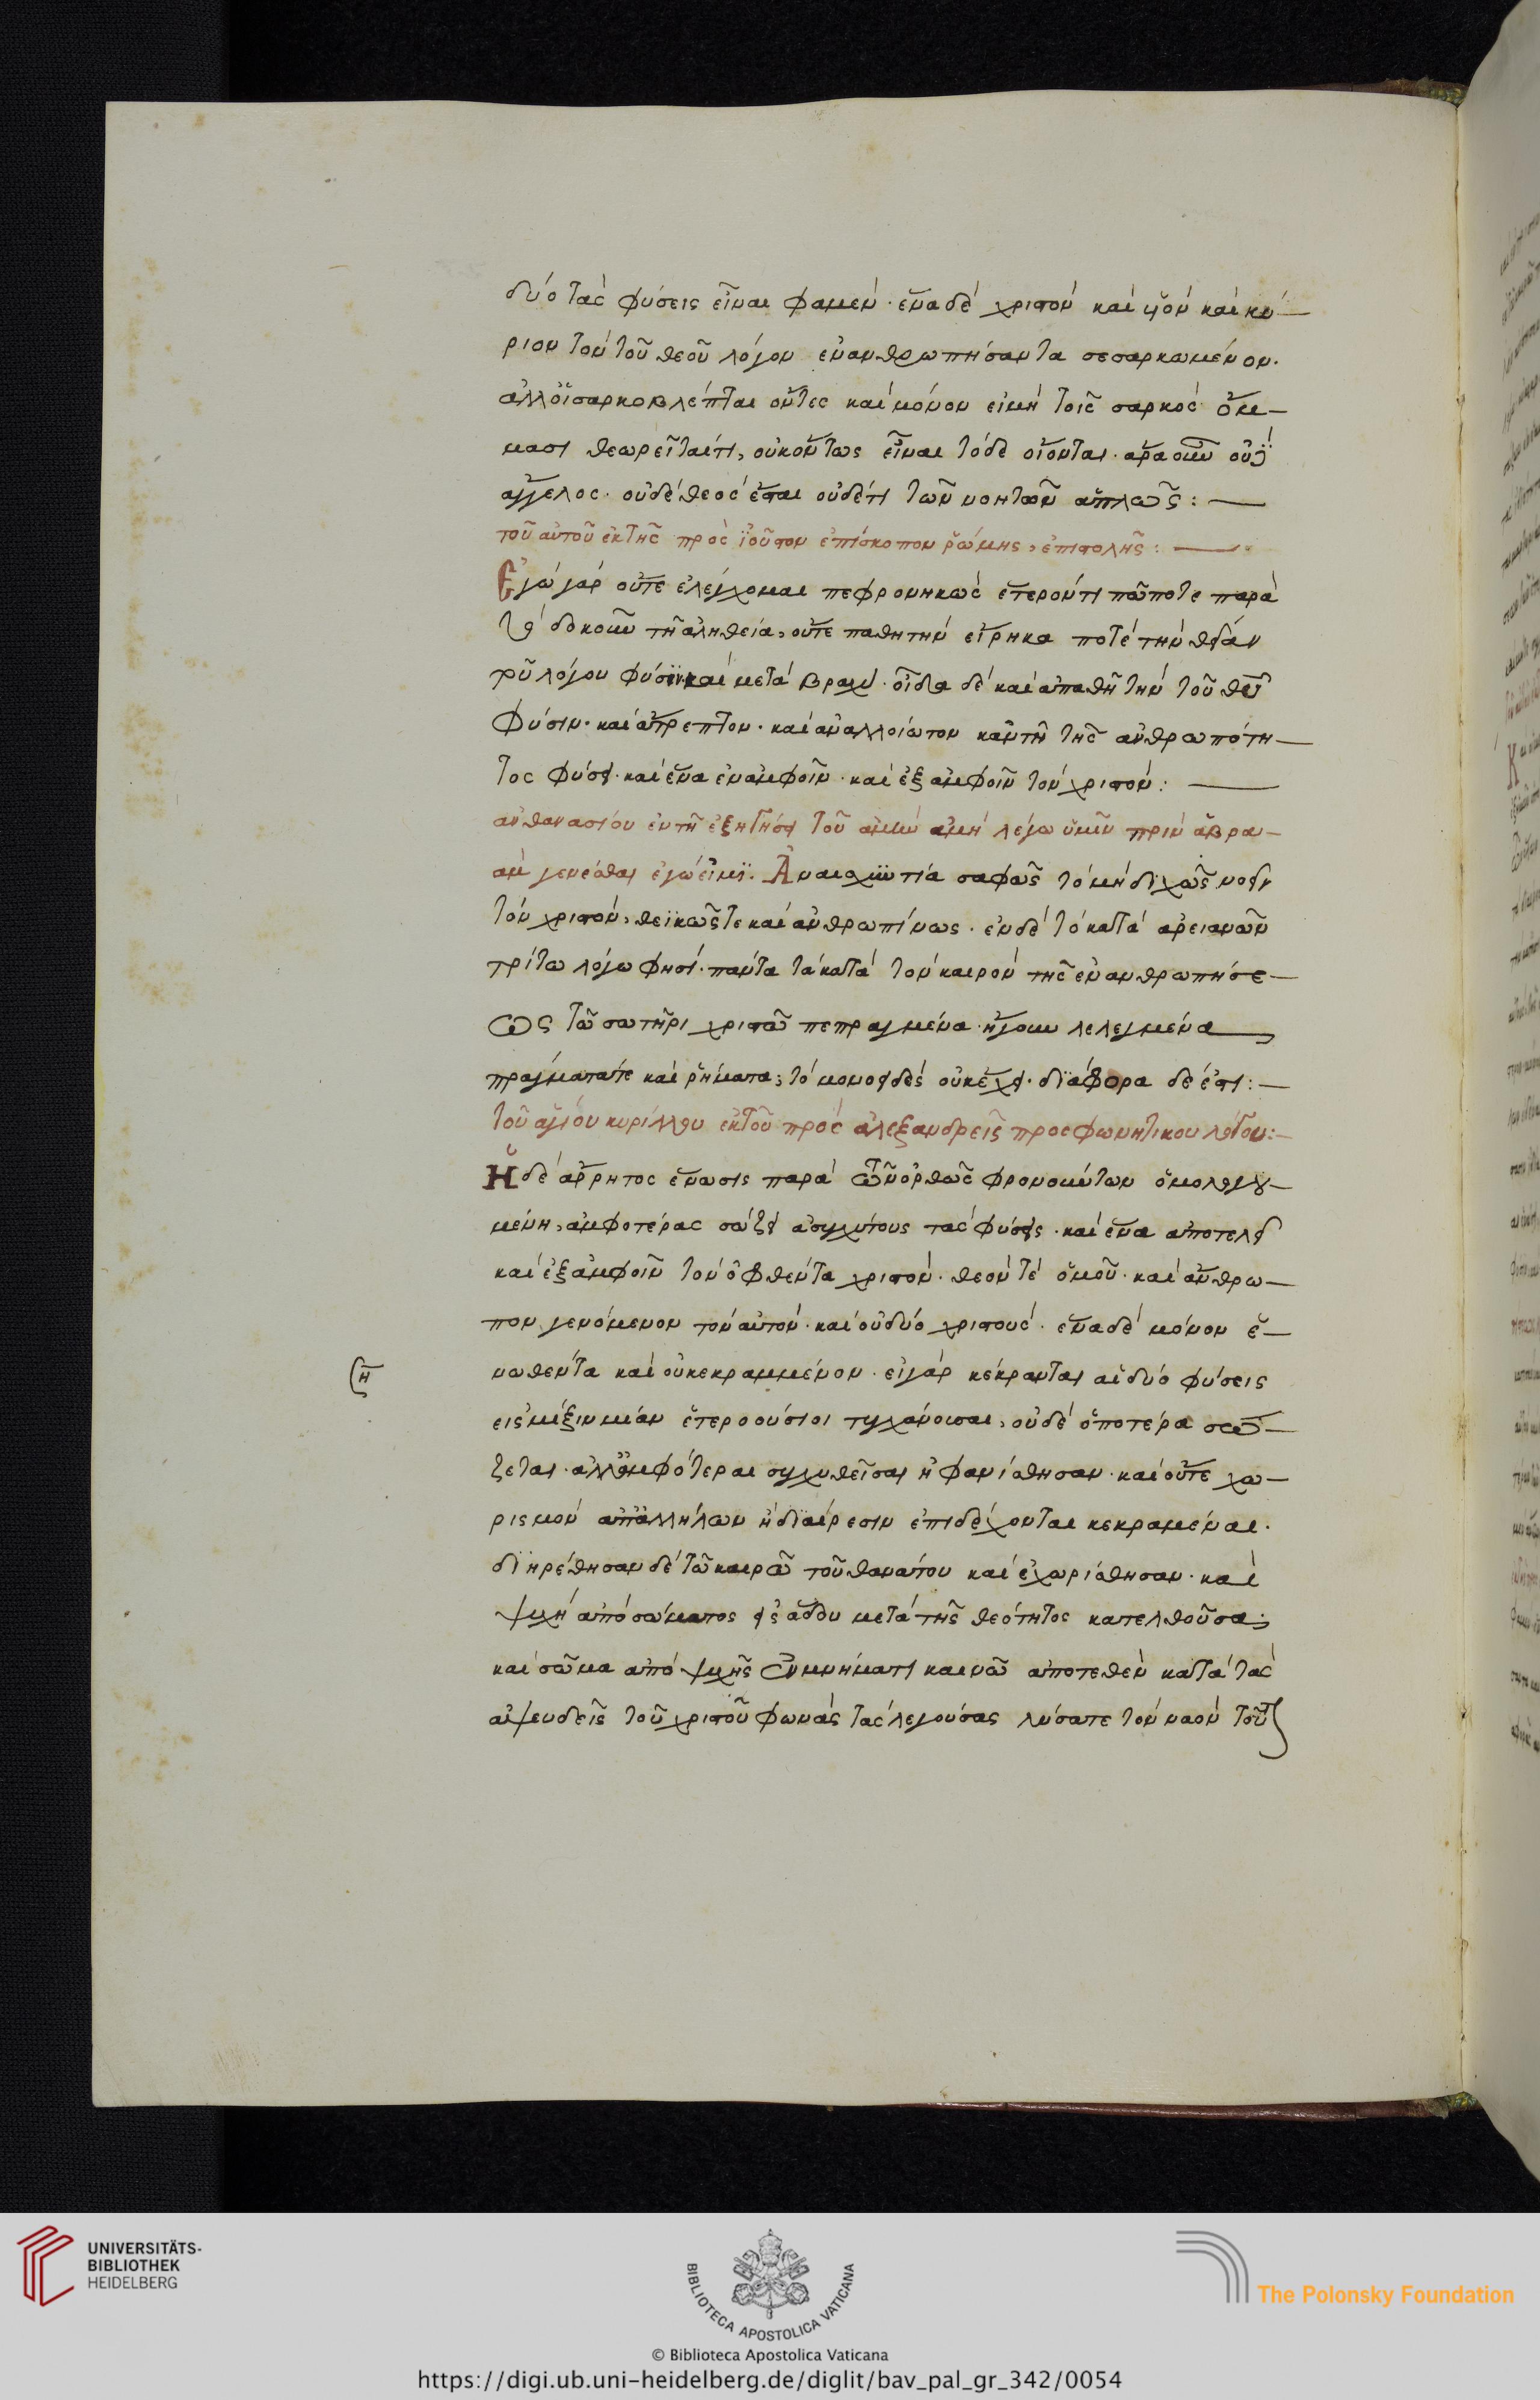 δύο τὰς φύσεις εἶναι φαμέν· ἕνα δὲ χριστόν καὶ υἱὸν καὶ κύ-
ριον τὸν τοῦ θεοῦ λόγον ἐνανθρωπήσαντα σεσαρκωμένον.
ἀλλ' οἱ σαρκοβλέπται ὄντες καὶ μόνον εἰ μὴ τοῖς σαρκὸς ὄμ-
μασι θεωρεῖται τί, οὐκ ὄντως εἶναι τόδε οἴονται. ἄρα οὖν οὐχ
ἄγγελος. οὐδὲ θεός ἐσται οὐδέ τι τῶν νοητῶν ἁπλῶς: —
τοῦ αὐτοῦ ἐκ τῆς πρὸς ϊοῦστον ἐπίσκοπον ῥώμης, ἐπιστολῆς: —
Ἐγὼ γὰρ οὔτε ἐλέγχομαι πεφρονηκὼς ἕτερόν τι πώποτε παρὰ
τὸ δοκοῦν τῆ ἀληθεία, οὔτε παθητὴν εἴρηκα ποτὲ τὴν θείαν
τοῦ λόγου φύσιν καὶ μετὰ βραχύ. οἶδα δὲ καὶ ἀπαθῆ τὴν τοῦ θεοῦ
φύσιν· καὶ ἄτρεπτον· καὶ ἀναλλοίωτον κἂν τῆ τῆς ἀνθρωπότη-
τος φύσει· καὶ ἕνα ἐν ἀμφοῖν· καὶ ἐξ ἀμφοῖν τὸν χριστόν: —
ἀθανασίου ἐν τῆ ἐξηγήσει τοῦ ἀμὴν ἀμὴν λέγω ὑμῖν πρὶν ἀβρα-
ὰμ γενέσθαι ἐγὼ εἰμϊ. Ἀναισχυντία σαφῶς τὸ μὴ διχῶς νοεῖν
τὸν χριστόν, θεϊκῶς τε καὶ ἀνθρωπίνως. ἐν δὲ τὸ κατὰ ἀρειανῶν
τρίτω λόγω φησί. πάντα τὰ κατὰ τὸν καιρὸν τῆς ἐνανθρωπήσε-
ως τῶ σωτῆρι χριστῶ πεπραγμένα ἤγουν λελεγμένα
πράγματα τε καὶ ῥήματα, τὸ μονοειδὲς οὐκ ἔχει. διάφορα δέ ἐστι: —
τοῦ ἁγίου κυρίλλου ἐκ τοῦ πρὸς ἀλεξανδρεῖς προσφωνητικοῦ λόγου: —
Ἡ δὲ ἄρρητος ἕνωσις παρὰ τῶν ὀρθῶς φρονούντων ὁμολογου-
μένη, ἀμφοτέρας σώζει ἀσυγχύτους τὰς φύσεις· καὶ ἕνα ἀποτελεῖ
καὶ ἐξ ἀμφοῖν τὸν ὀφθέντα χριστόν. θεόν τε ὁμοῦ· καὶ ἄνθρω-
πον γενόμενον τὸν αὐτόν· καὶ οὐ δύο χριστούς. ἕνα δὲ μόνον ἑ-
νωθέντα καὶ οὐ κεκραμμένον. εἰ γὰρ κέκρανται αἱ δύο φύσεις
εἰς μίξιν μίαν ἑτεροούσιοι τυγχάνουσαι, οὐδὲ ὁποτέρα σώ-
ζεται. ἀλλ' ἀμφότεραι συγχυθεῖσαι ἠφανίσθησαν· καὶ οὔτε χω-
ρισμὸν ἀπ' ἀλλήλων ἢ διαίρεσιν ἐπιδέχονται κεκραμέναι.
διηρέθησαν δὲ τῶ καιρῶ τοῦ θανάτου καὶ ἐχωρίσθησαν· καὶ
ψυχὴ ἀπὸ σώματος εἰς ἅδου μετὰ τῆς θεότητος κατελθοῦσα·
καὶ σῶμα ἀπὸ ψυχῆς ἐν μνήματι καινῶ ἀποτεθὲν κατὰ τὰς
ἀψευδεῖς τοῦ χριστοῦ φωνὰς τὰς λεγούσας λύσατε τὸν ναὸν τοῦτ
UNIVERSITÄTS-
BIBLIOTHEK
HEIDELBERG
BIBLIOTECA APOSTOLICA VATICANA
The Polonsky Foundation
© Biblioteca Apostolica Vaticana
https://digi.ub.uni-heidelberg.de/diglit/bav_pal_gr_342/0054